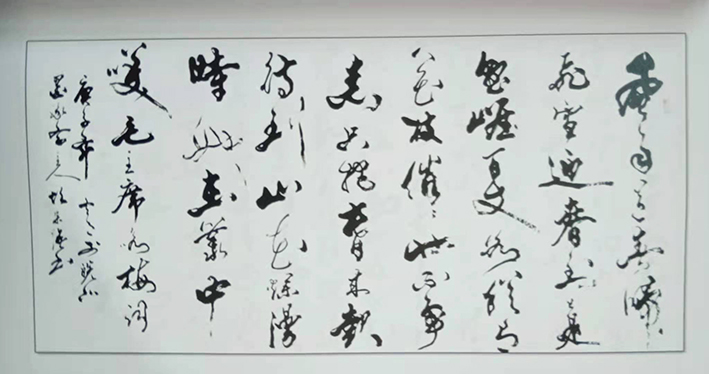 風雨送春歸
飛雪迎春到已是
懸崖百丈冰猶有
花枝俏俏也不爭
春只把春來報
待到山花爛漫
時她在叢中
笑毛主席咏梅詞
庚子年
主人